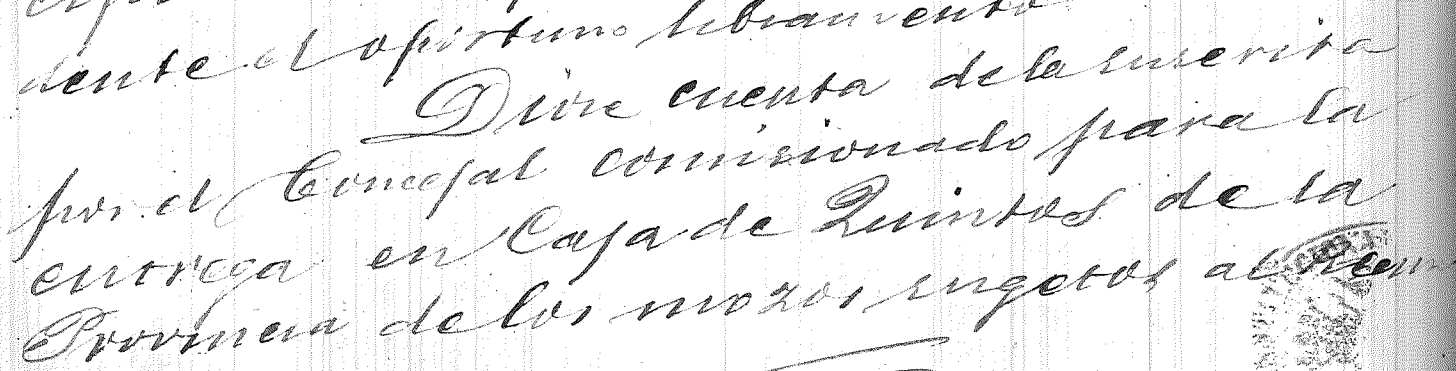 dente el oportuno libramiento
Diose cuenta de la suscrita
por el Concejal comisionado para la
entrega en Caja de Quintos de la
Provincia de los mozos sugetos al